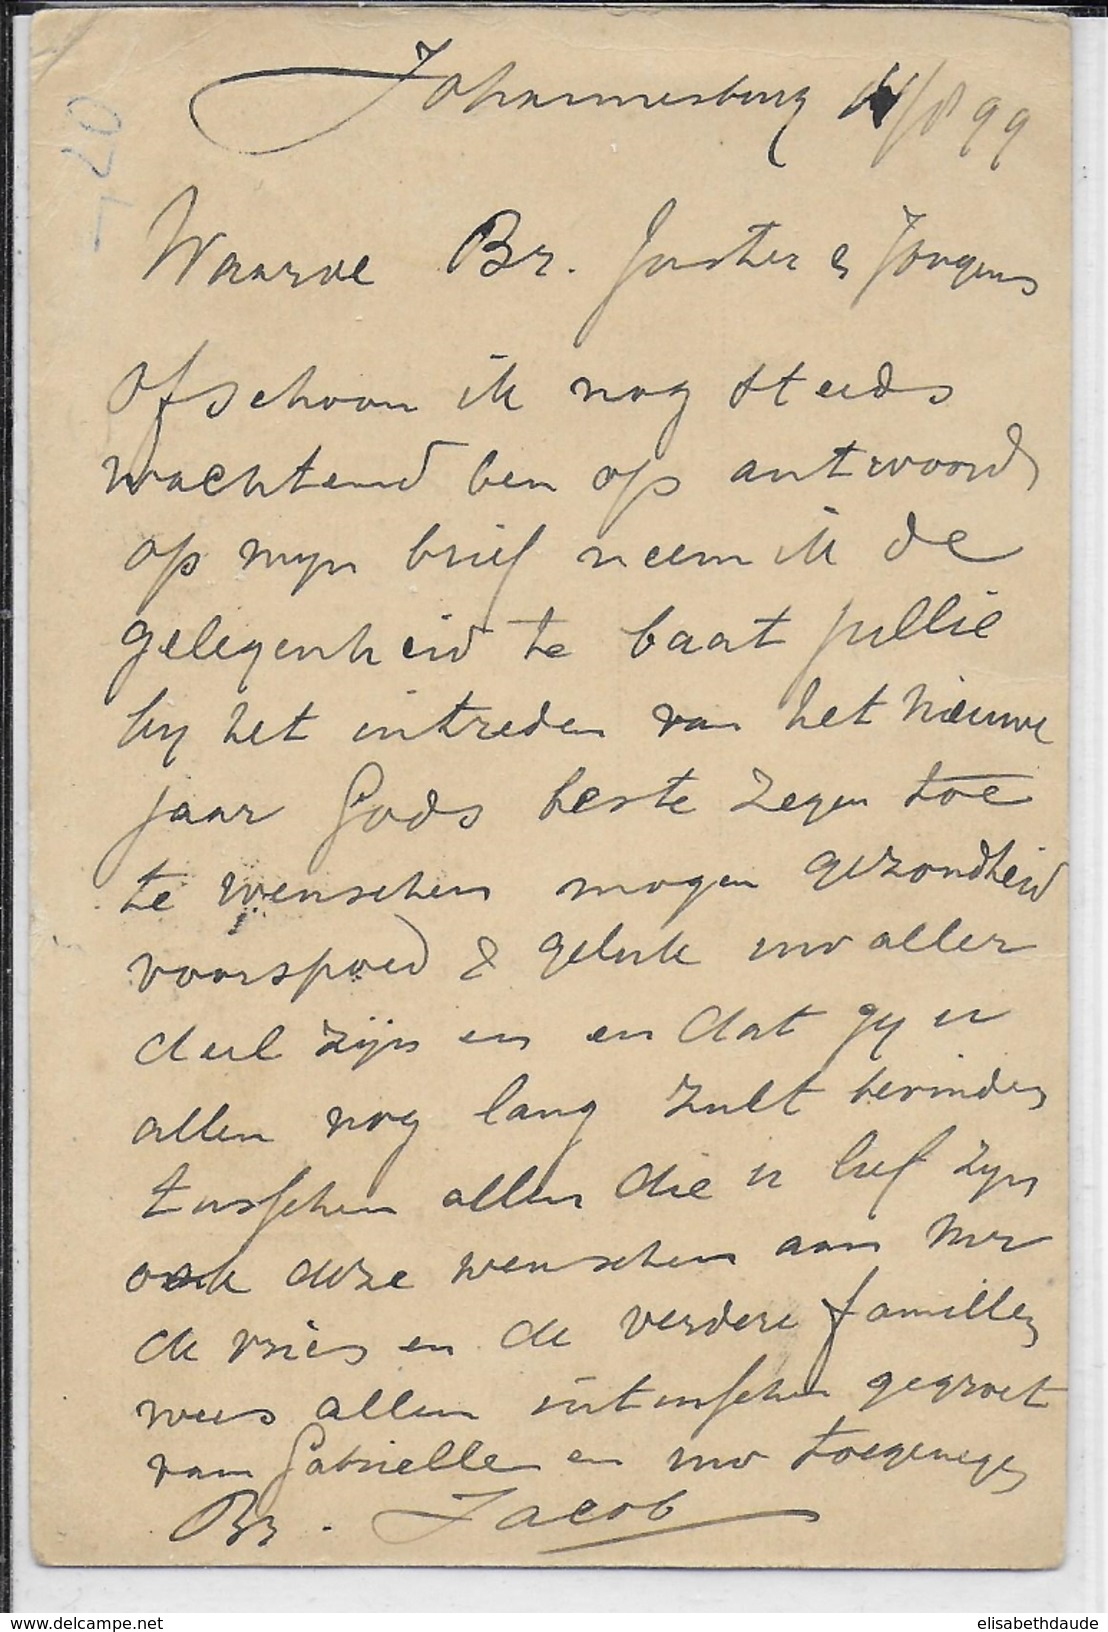 Johannesburg 4/8 99
Waarde Br. Juster & Jongens
Ofschoon ik nog steeds
wachtend ben op antwoord
op mijn brief neem ik de
gelegenheid te baat jullie
bij het intreden van het nieuwe
jaar Gods beste zegen toe
te wenschen mogen gezondheid
voorspoed & geluk uw aller
deel zijn en en dat gy u
allen nog lang zult bevinden
tusschen allen die u lief zijn
ook deze wenschen aan Mr
de vries en de verdere familley
wees allen intusschen gegroet
van Gabrielle en uw toegenegen
Br. Jacob
elisabethdaude
www.delcampe.net